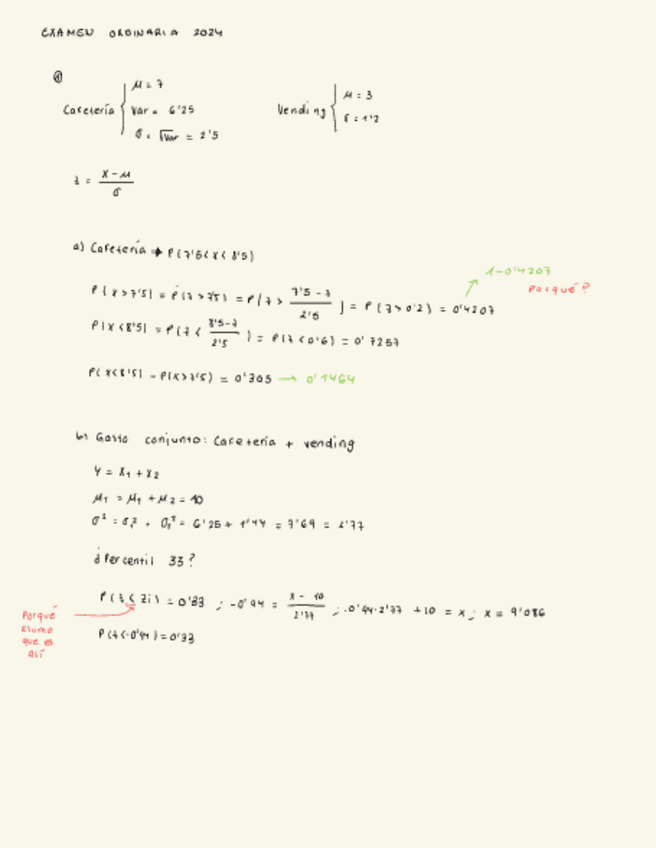 EXAMEN ORDINARIA 2024
①
Cafetería { μ = 7
Var = 6'25
σ = √Var = 2'5
Vending { μ = 3
σ = 1'2
z = (x - μ) / σ
a) Cafetería → P(7'5 < x < 8'5)
P(x > 7'5) = P(z > 7'5) = P(z > (7'5 - 7) / 2'5) = P(z > 0'2) = 0'4207
1 - 0'4207
Porqué?
P(x < 8'5) = P(z < (8'5 - 7) / 2'5) = P(z < 0'6) = 0'7257
P(x < 8'5) - P(x > 7'5) = 0'305 → 0'1464
b) Gasto conjunto: Cafetería + vending
Y = x₁ + x₂
μ₁ = μ₁ + μ₂ = 10
σ² = σ₁² + σ₂² = 6'25 + 1'44 = 7'69 = 2'77
¿Percentil 33?
P(z < zi) = 0'33 ; -0'44 = (x - 10) / 2'77 ; -0'44·2'77 + 10 = x ; x = 9'086
Porqué
asumo
que es
así
P(z < -0'44) = 0'33